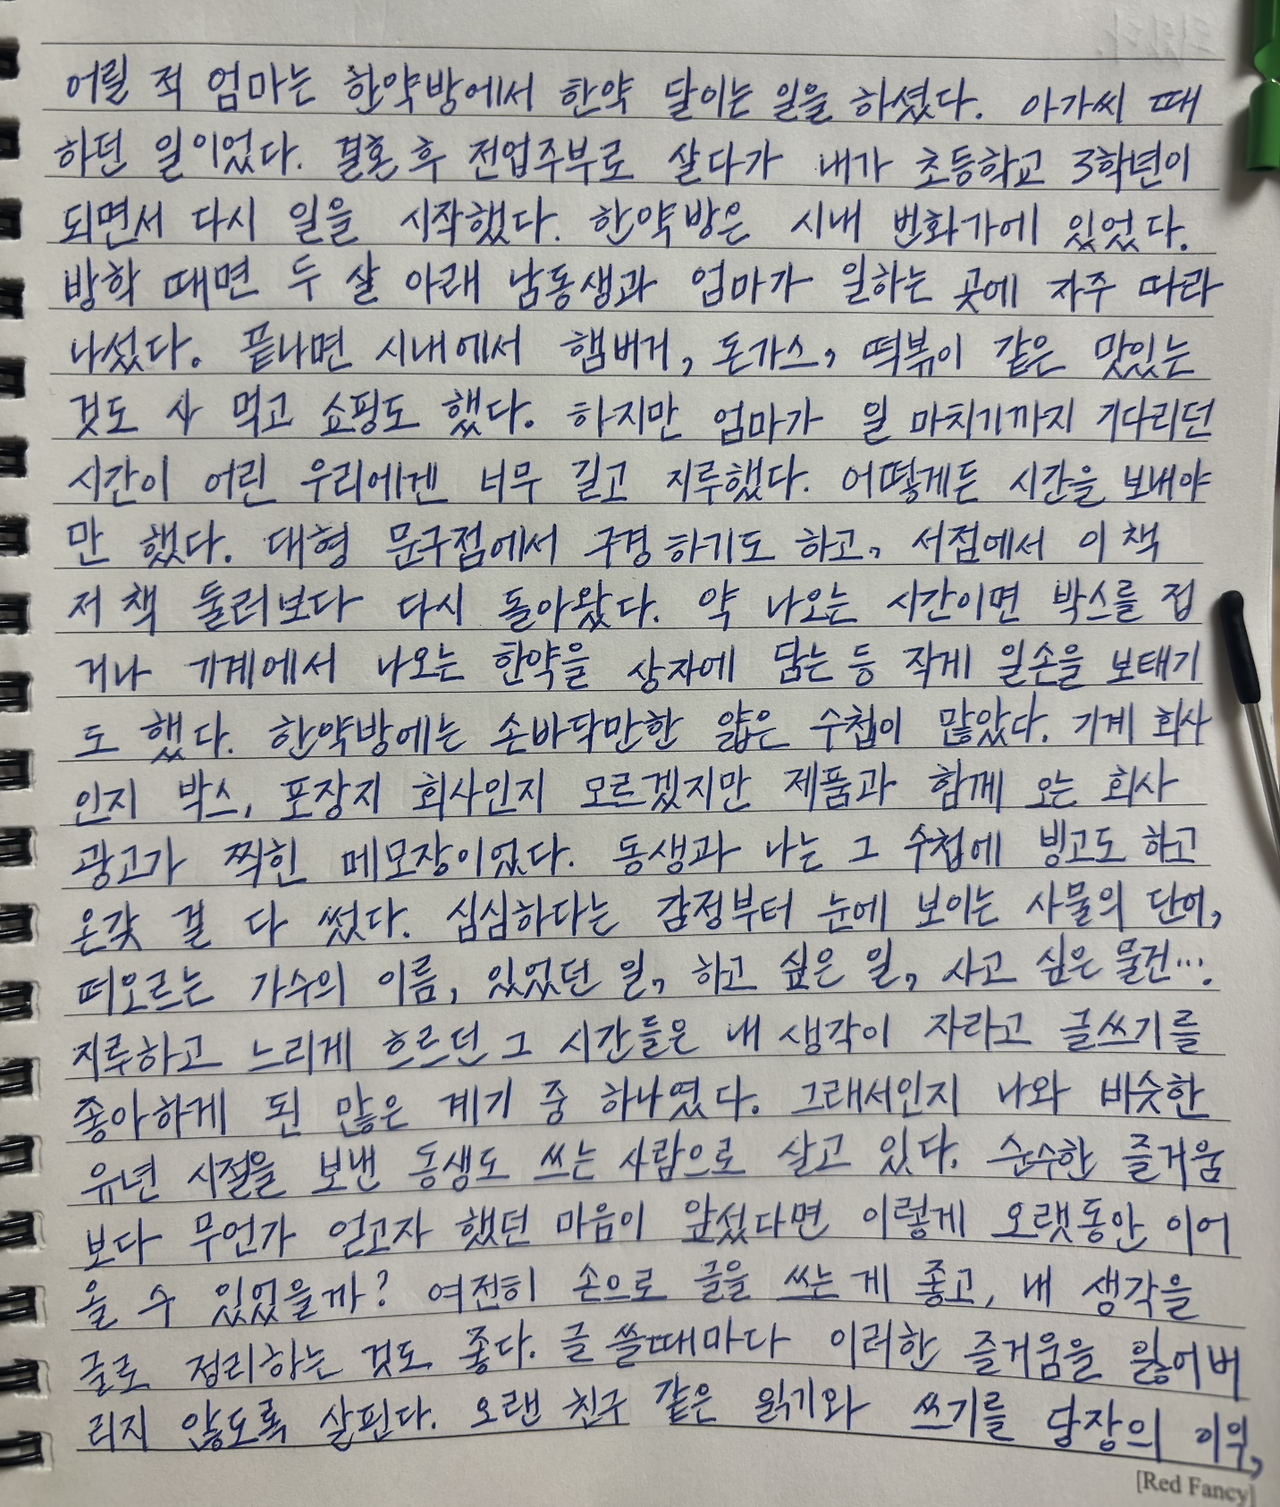 어릴 적 엄마는 한약방에서 한약 달이는 일을 하셨다. 아가씨 때
하던 일이었다. 결혼 후 전업주부로 살다가 내가 초등학교 3학년이
되면서 다시 일을 시작했다. 한약방은 시내 번화가에 있었다.
방학 때면 두 살 아래 남동생과 엄마가 일하는 곳에 자주 따라
나섰다. 끝나면 시내에서 햄버거, 돈가스, 떡볶이 같은 맛있는
것도 사 먹고 쇼핑도 했다. 하지만 엄마가 일 마치기까지 기다리던
시간이 어린 우리에겐 너무 길고 지루했다. 어떻게든 시간을 보내야
만 했다. 대형 문구점에서 구경하기도 하고, 서점에서 이 책
저 책 둘러보다 다시 돌아왔다. 약 나오는 시간이면 박스를 접
거나 기계에서 나오는 한약을 상자에 담는 등 작게 일손을 보태기
도 했다. 한약방에는 손바닥만한 얇은 수첩이 많았다. 기계 회사
인지 박스, 포장지 회사인지 모르겠지만 제품과 함께 오는 회사
광고가 찍힌 메모장이었다. 동생과 나는 그 수첩에 빙고도 하고
온갖 걸 다 썼다. 심심하다는 감정부터 눈에 보이는 사물의 단어,
떠오르는 가수의 이름, 있었던 일, 하고 싶은 일, 사고 싶은 물건….
지루하고 느리게 흐르던 그 시간들은 내 생각이 자라고 글쓰기를
좋아하게 된 많은 계기 중 하나였다. 그래서인지 나와 비슷한
유년 시절을 보낸 동생도 쓰는 사람으로 살고 있다. 순수한 즐거움
보다 무언가 얻고자 했던 마음이 앞섰다면 이렇게 오랫동안 이어
올 수 있었을까? 여전히 손으로 글을 쓰는 게 좋고, 내 생각을
글로 정리하는 것도 좋다. 글 쓸때마다 이러한 즐거움을 잃어버
리지 않도록 살핀다. 오랜 친구 같은 읽기와 쓰기를 당장의 이익,
[Red Fancy]